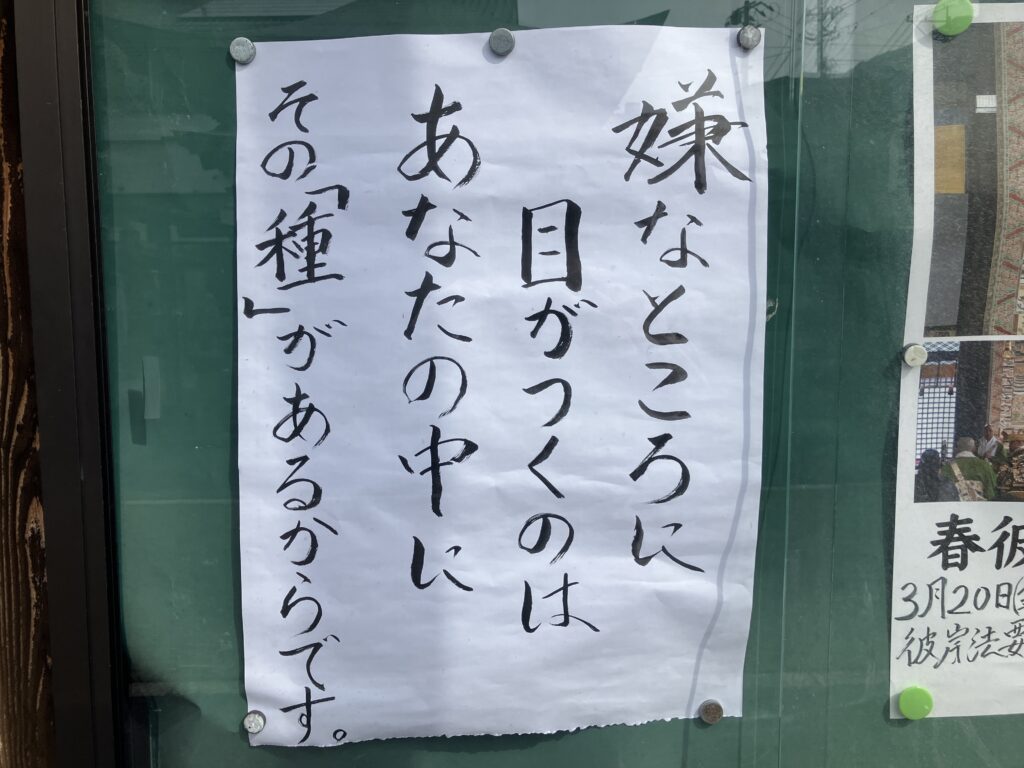 嫌なところに
目がつくのは
あなたの中に
その「種」があるからです。
春彼
3月20日
彼岸法要